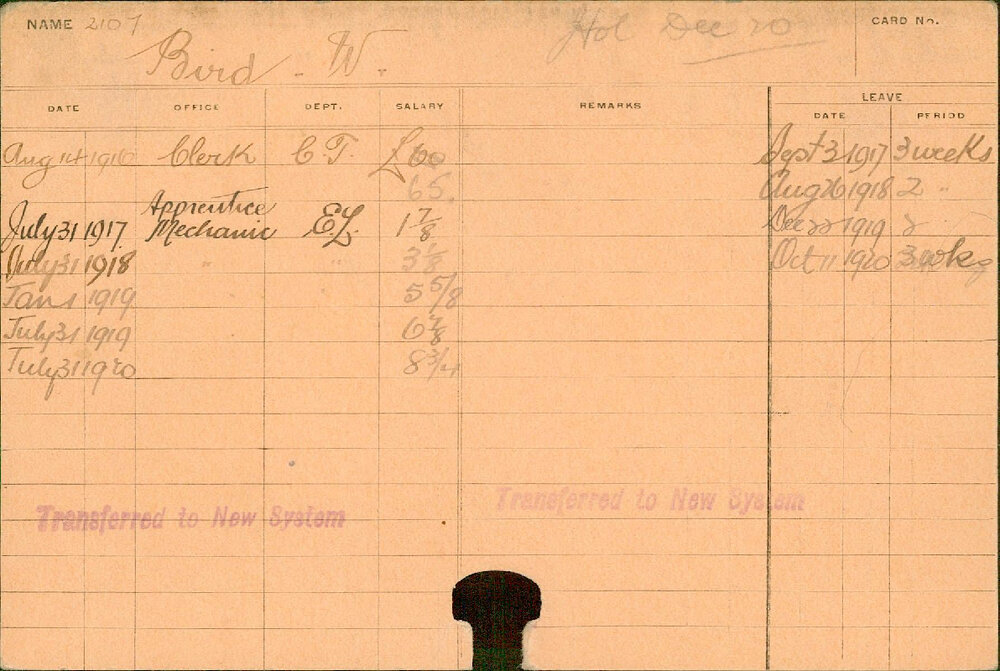 NAME 2107 Hol Dec 20 CARD No.
Bird . W.
DATE OFFICE DEPT. SALARY REMARKS LEAVE
DATE PERIOD
Aug 14 1916 Clerk C T. £60 Sept 3 1917 3 weeks
65. Aug 26 1918 2 "
Apprentice
July 31 1917 Mechanic E L. 1 7/8 Dec 22 1919 2
July 31 1918 " " 3 1/8 Oct 11 1920 3 wks
Jan 1 1919 5 5/8
July 31 1919 6 7/8
July 31 1920 8 3/4
Transferred to New System Transferred to New System